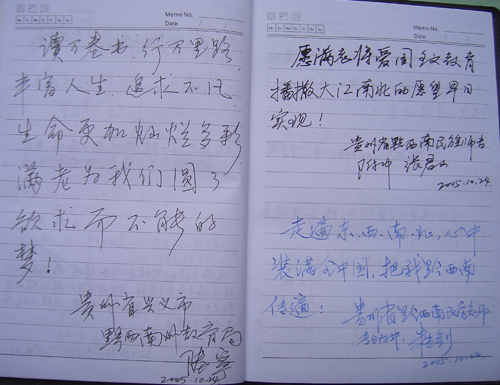 Memo No.
Date
读万卷书，行万里路
丰富人生，追求不凡
生命更加灿烂多彩
满老为我们圆了
欲求而不能的
梦！
贵州省兴义市
黔西南州教育局
2005.10.24.
Memo No.
Date
愿满老将爱国多文教育
播撒大江南北的愿望早日
实现！
贵州省黔西南民族师专
附中 张君
2005.10.24.
走遍东、西、南、北，心中
装满全中国，把我黔西南
传遍！
贵州省黔西南民族师
2005.10.24.